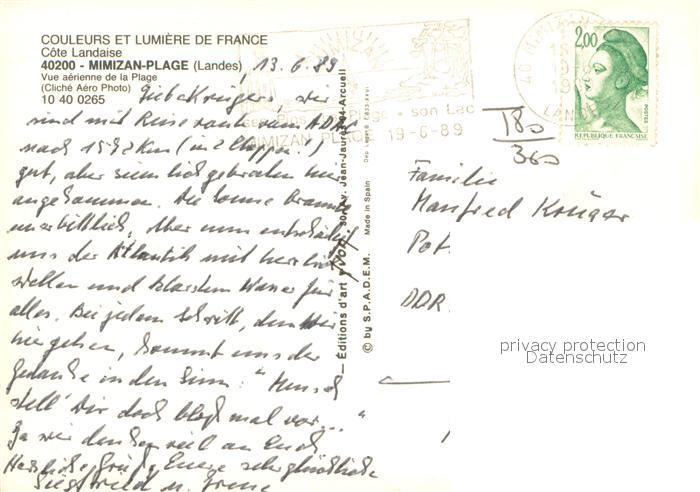 COULEURS ET LUMIÈRE DE FRANCE
Côte Landaise
40200 - MIMIZAN-PLAGE (Landes)
Vue aérienne de la Plage
(Cliché Aéro Photo)
10 40 0265
13.6.89
Liebe Krügers, wir
sind mit Reiseroute vom ADAC
nach 1572 km (in 2 Etappen!)
gut, aber ziemlich gebraten hier
angekommen. Die Sonne brannte
unerbittlich. Aber nun entschädigt
uns der Atlantik mit herrlichen
Wellen und klarstem Wasser für
alles. Bei jedem Schritt, den wir
hier gehen, kommt uns der
Gedanke in den Sinn: "Mensch
stell' Dir doch bloß mal vor..."
Ja wir denken viel an Euch
Herzliche Grüße Eure sehr glückliche
Siegfried u.
— Éditions d'art
Jean-Jaurès 94-Arcueil
© by S.P.A.D.E.M.
Made in Spain
son Lac
MIMIZAN PLAGE
19-6-89
40 MIMIZAN
LANDES
2,00
POSTES
REPUBLIQUE FRANÇAISE
T80
360
Familie
Manfred Krüger
Pot
DDR
privacy protection
Datenschutz